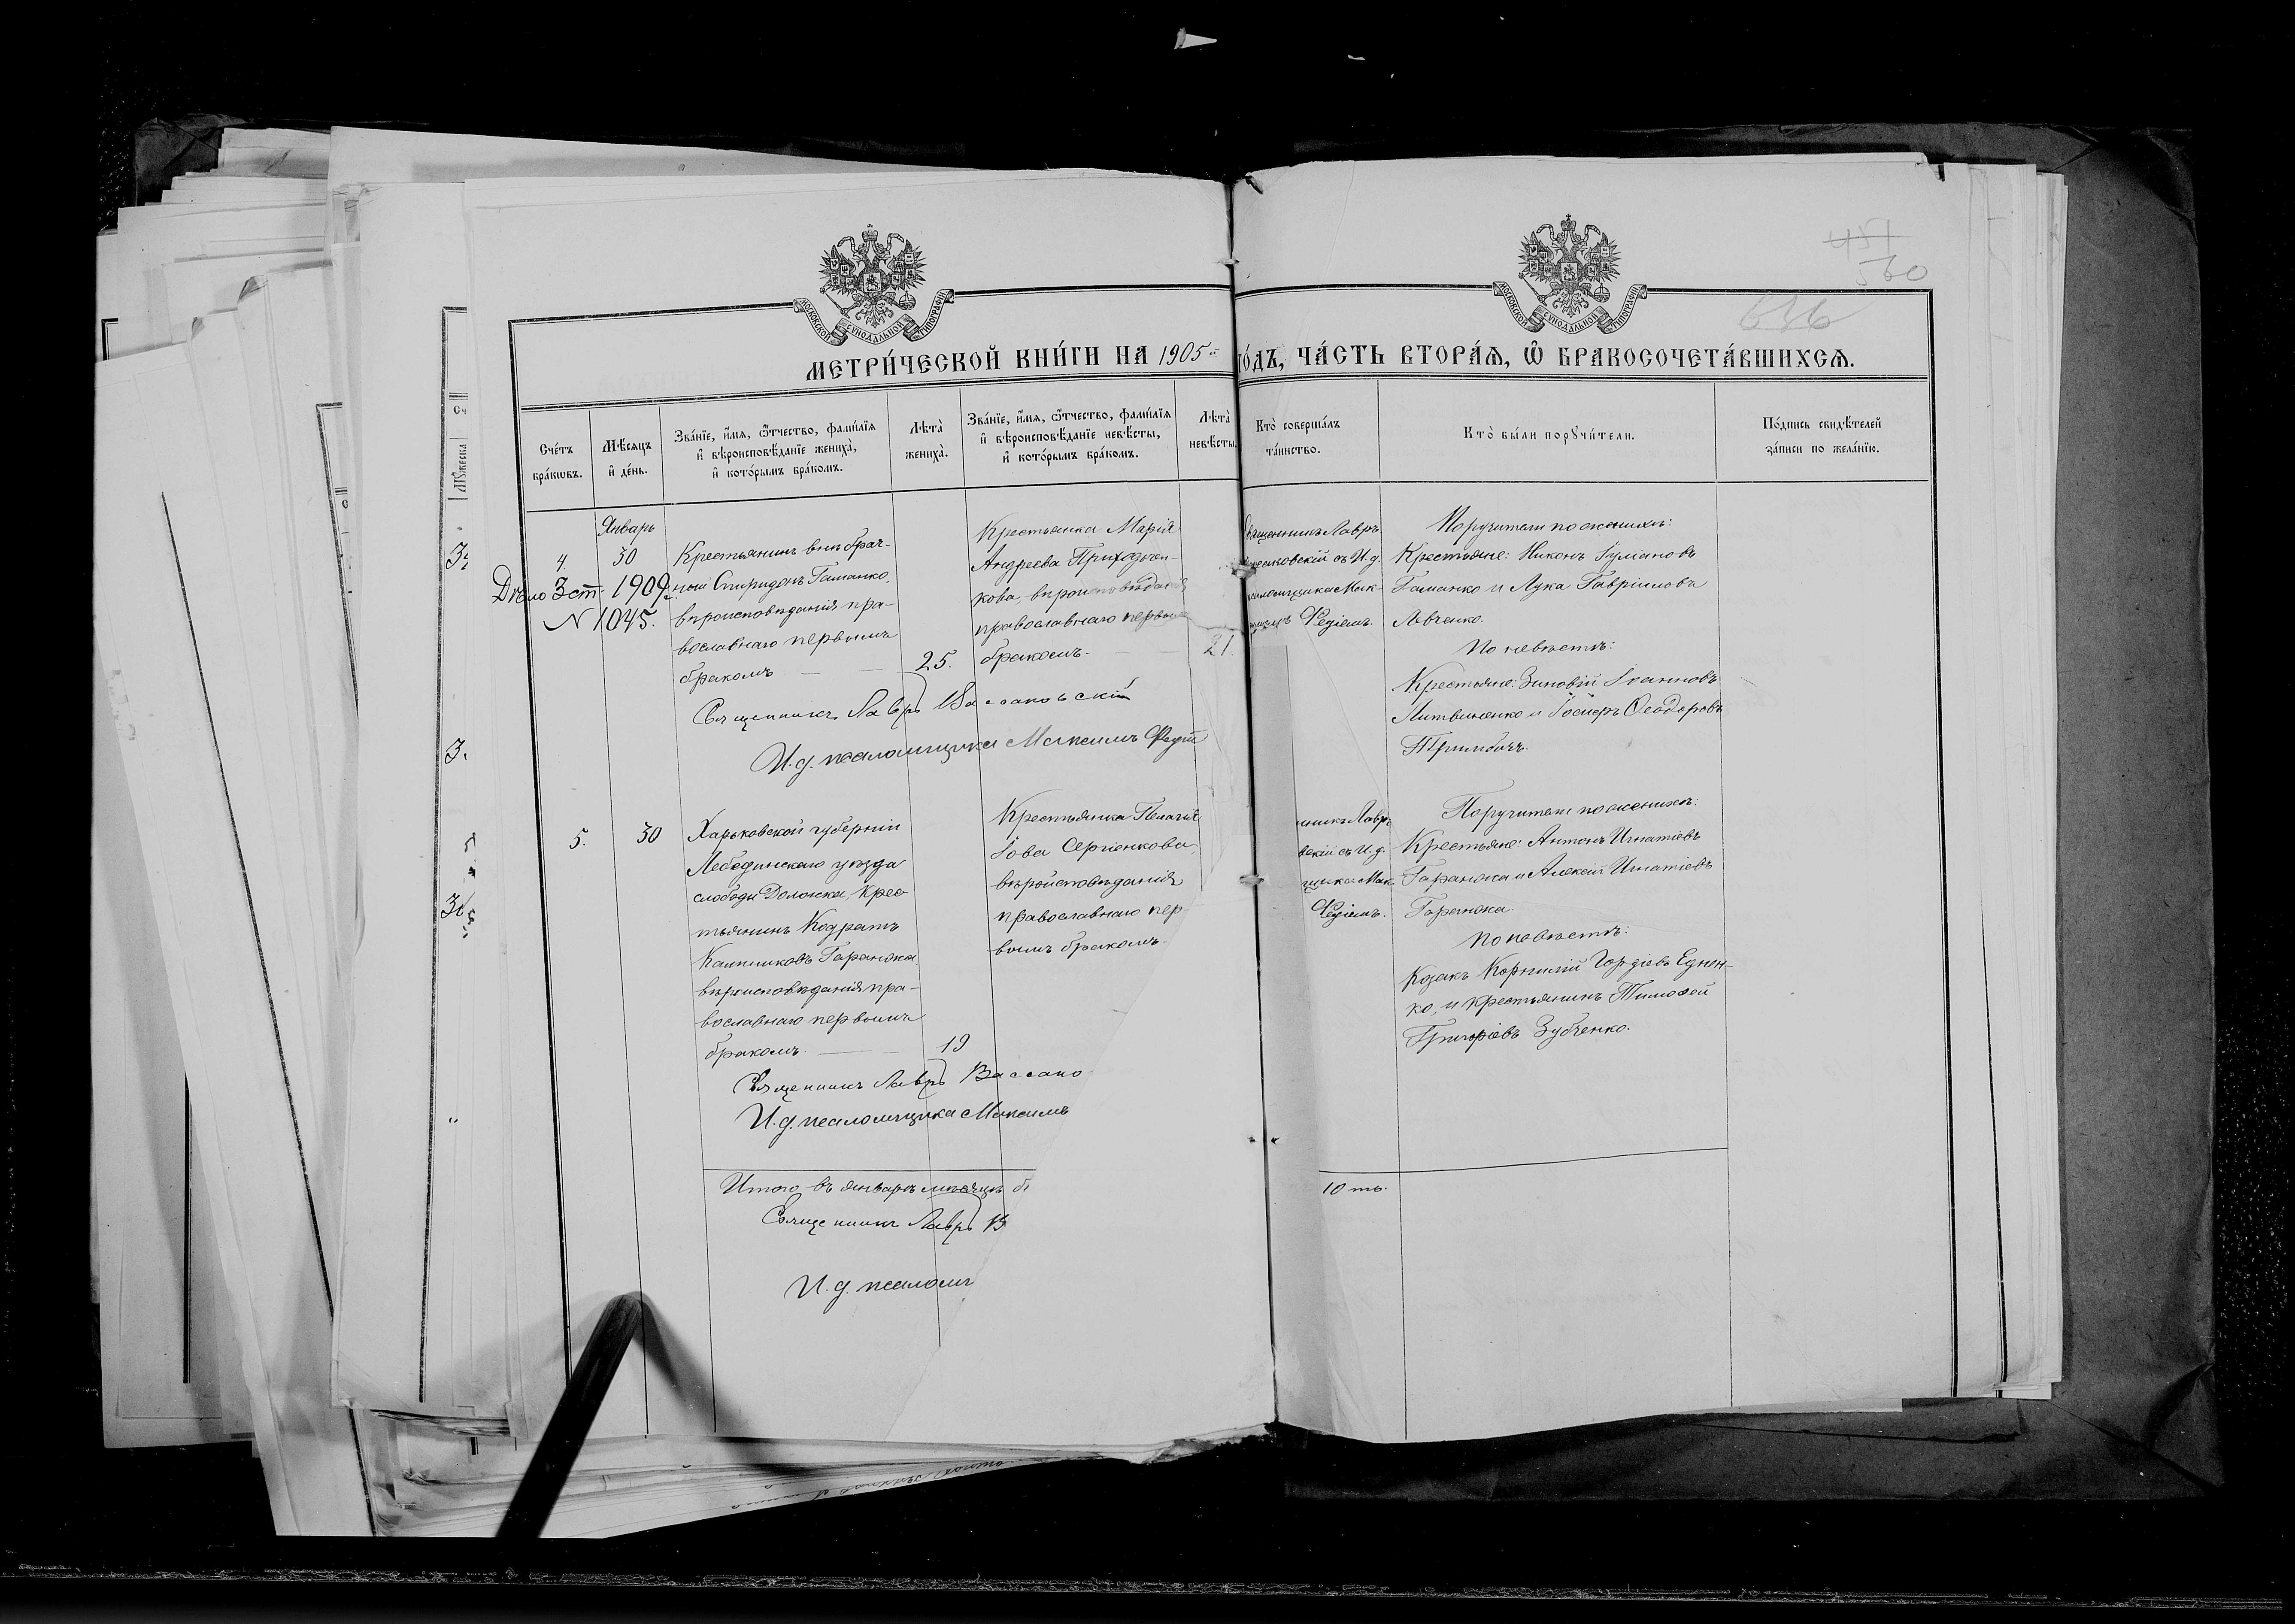 451
560
636
МОСКОВСКОЙ СѴНОДАЛЬНОЙ ТИПОГРАФІИ
МОСКОВСКОЙ СѴНОДАЛЬНОЙ ТИПОГРАФІИ
МЕТРИ́ЧЕСКОЙ КНИ́ГИ НА 1905 й
ГО́ДЪ, ЧА́СТЬ ВТОРА́Ѧ, Ѽ БРАКОСОЧЕТА́ВШИХСѦ.
Сче́тъ
бра́кѡвъ.
Мѣ́сѧцъ
и҆ де́нь.
Зва́нїе, и҆́мѧ, ѻ҆́тчество, фами́лїѧ
и҆ вѣроисповѣ́данїе жениха̀,
и҆ кото́рымъ бра́комъ.
Лѣ́та̀
жениха̀.
Зва́нїе, и҆́мѧ, ѻ҆́тчество, фами́лїѧ
и҆ вѣроисповѣ́данїе невѣ́сты,
и҆ кото́рымъ бра́комъ.
Лѣ́та̀
невѣ́сты.
Кто̀ соверша́лъ
та́инство.
Кто̀ бы́ли порꙋчи́тели.
По́дпись свидѣ́телей
за́писи по жела́нїю.
Январь
4.
30
Дѣло 3 ст. 1909 г.
N 1045.
Крестьянинъ внѣбрач-
ный Спиридонъ Гаманко,
вѣроисповѣданія пра-
вославнаго первымъ
бракомъ
25.
Крестьянка Марія
Андреева Приходьчен-
кова, вѣроисповѣданія
православнаго первымъ
бракомъ.
21.
Священникъ Лавръ
съ И. д.
псаломщика Мак-
Федіемъ.
Поручители по женихѣ:
Крестьяне: Никонъ
Гаманко и Лука Гавріиловъ
Левченко.
По невѣстѣ:
Крестьяне: Зиновій Іоанновъ
Литвиненко и Феодоровъ
Священникъ Лавръ
И. д. псаломщика Максимъ
5.
30
Харьковской губерніи
Лебединскаго уѣзда
слободы крес-
тьянинъ Кодратъ
Гаранжа,
вѣроисповѣданія пра-
вославнаго первымъ
бракомъ.
19
Крестьянка Пелагія
Іова Сергіенкова,
вѣроисповѣданія
православнаго пер-
вымъ бракомъ.
никъ Лавръ
вскій съ И. д.
щика Мак-
Федіемъ.
Поручители по женихѣ:
Крестьяне: Антонъ Игнатіевъ
Гаранжа и Алексій Игнатіевъ
Гаранжа.
По невѣстѣ:
Козакъ Корнилій Гордіевъ Еднен-
ко, и крестьянинъ Тимоѳей
Григоріевъ Зубченко.
Священникъ Лавръ Вассако
И. д. псаломщика Максимъ
Итого въ январѣ мѣсяцѣ б
10 ть.
Священникъ Лавръ В
И. д. псаломщ